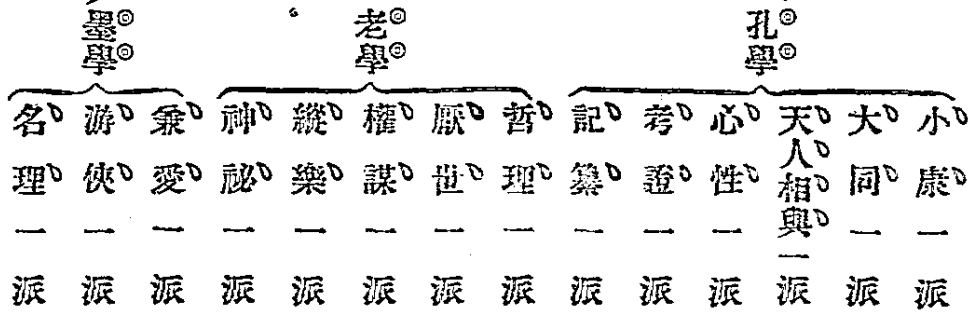 孔學
小康一派
大同一派
天人相與一派
心性一派
考證一派
記纂一派
老學
哲理一派
厭世一派
權謀一派
縱樂一派
神祕一派
墨學
兼愛一派
游俠一派
名理一派